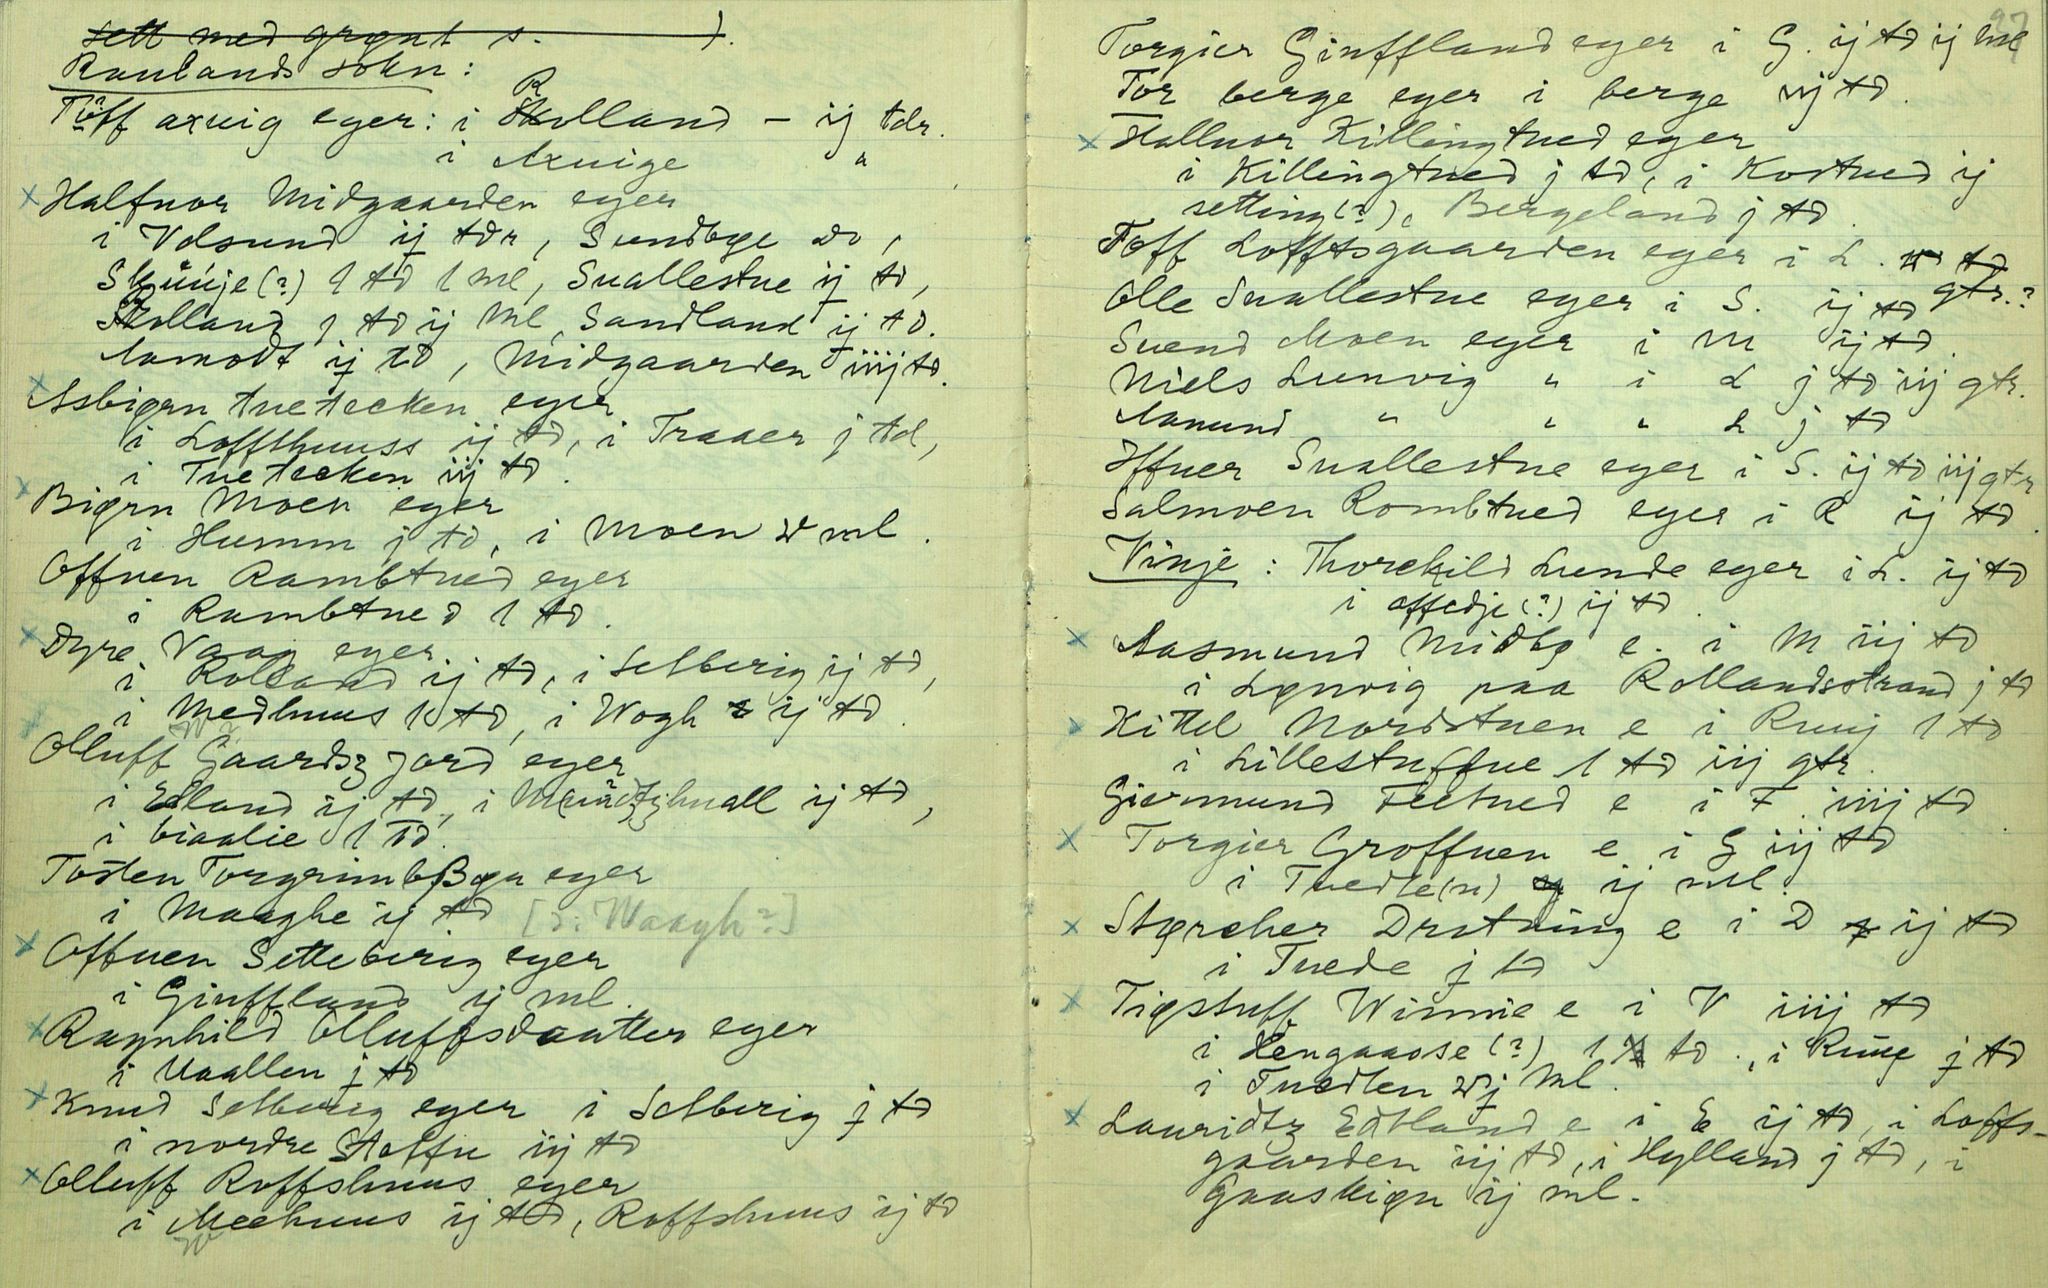 sett med grønt s. ).
Raulands sokn:
Töff axuig eger: i Rolland – ij tdr.
i Axuige "
x Halfuor Midgaarden eger
i Volsund ij tdr, Sundbye do,
Skiuije (?) 1 td 1 ml, Suallestue ij td,
Rolland 1 td ij ml, Sandland ij td.
Aamodt ij td, Midgaarden iiij td.
x Asbiørn tuetecken eger
i Loffthuuss ij td, i Traaer j td,
i Tuetecken iij td.
x Biørn Moen eger
i Humm j td, i Moen ml.
Offuen Rambtued eger
i Rambtued 1 td.
x Dyre Vaag eger
i Rolland ij td, i Selberig ij td,
i Medhuus 1 td, i Wogh ij td.
Olluff Gaardsz jord eger
i Edland ij td, i ij td,
i biaalie 1 td.
Tosten Torgrimb Bøn eger
i Maaghe ij td [ɔ: Waagh?]
x Offuen Setteberig eger
i Ginffland ij ml.
x Ragnhild Olluffsdaatter eger
i Uaallen j td
x Knud Selberig eger i Selberig j td
i nordre Stoffue iij td
x Olluff Roffshuus eger
i Meehuus ij td, Roffshuus ij td
97
Torgier Ginffland eger i G. ij td ij ml
Tor berge eger i berge iij td.
x Halluor Killingtued eger
i Killingtued j td, i Kostued ij
setting (?), Bergeland j td.
Toff Lofftsgaarden eger i L. td
Olle Suallestue eger i S. ij td gtr.?
Suend Moen eger i M ij td.
Niels Lunvig " i L j td iij gtr.
Aamund " " " L j td
Offuer Suallestue eger i S. ij td iij gtr
Salmoen Rombtued eger i R ij td.
Vinje: Thorekild Lunde eger i L. ij td
i offedje (?) ij td.
x Aasmund Midbø e. i M iij td
i Lønvig paa Rollandsstrand j td
x Kittel Nordstuen e i Ruuj 1 td
i Lillestuffue 1 td iij gtr.
Giermund Feetued e i F iiij td.
x Torgier Groffuen e i G iij td
i Tuedte(n) ij ml.
x Størcher Drotning e i D ij td
i Tuede j td
x Tiøstuff Winnie e i V iiij td
i Hengaaose (?) 1 td., i Ruue j td
i Tuedten ml.
x Lauridtz Edtland e i E ij td, i Loffs-
gaarden iij td, i Hylland j td, i
Gaaskiøn ij ml.